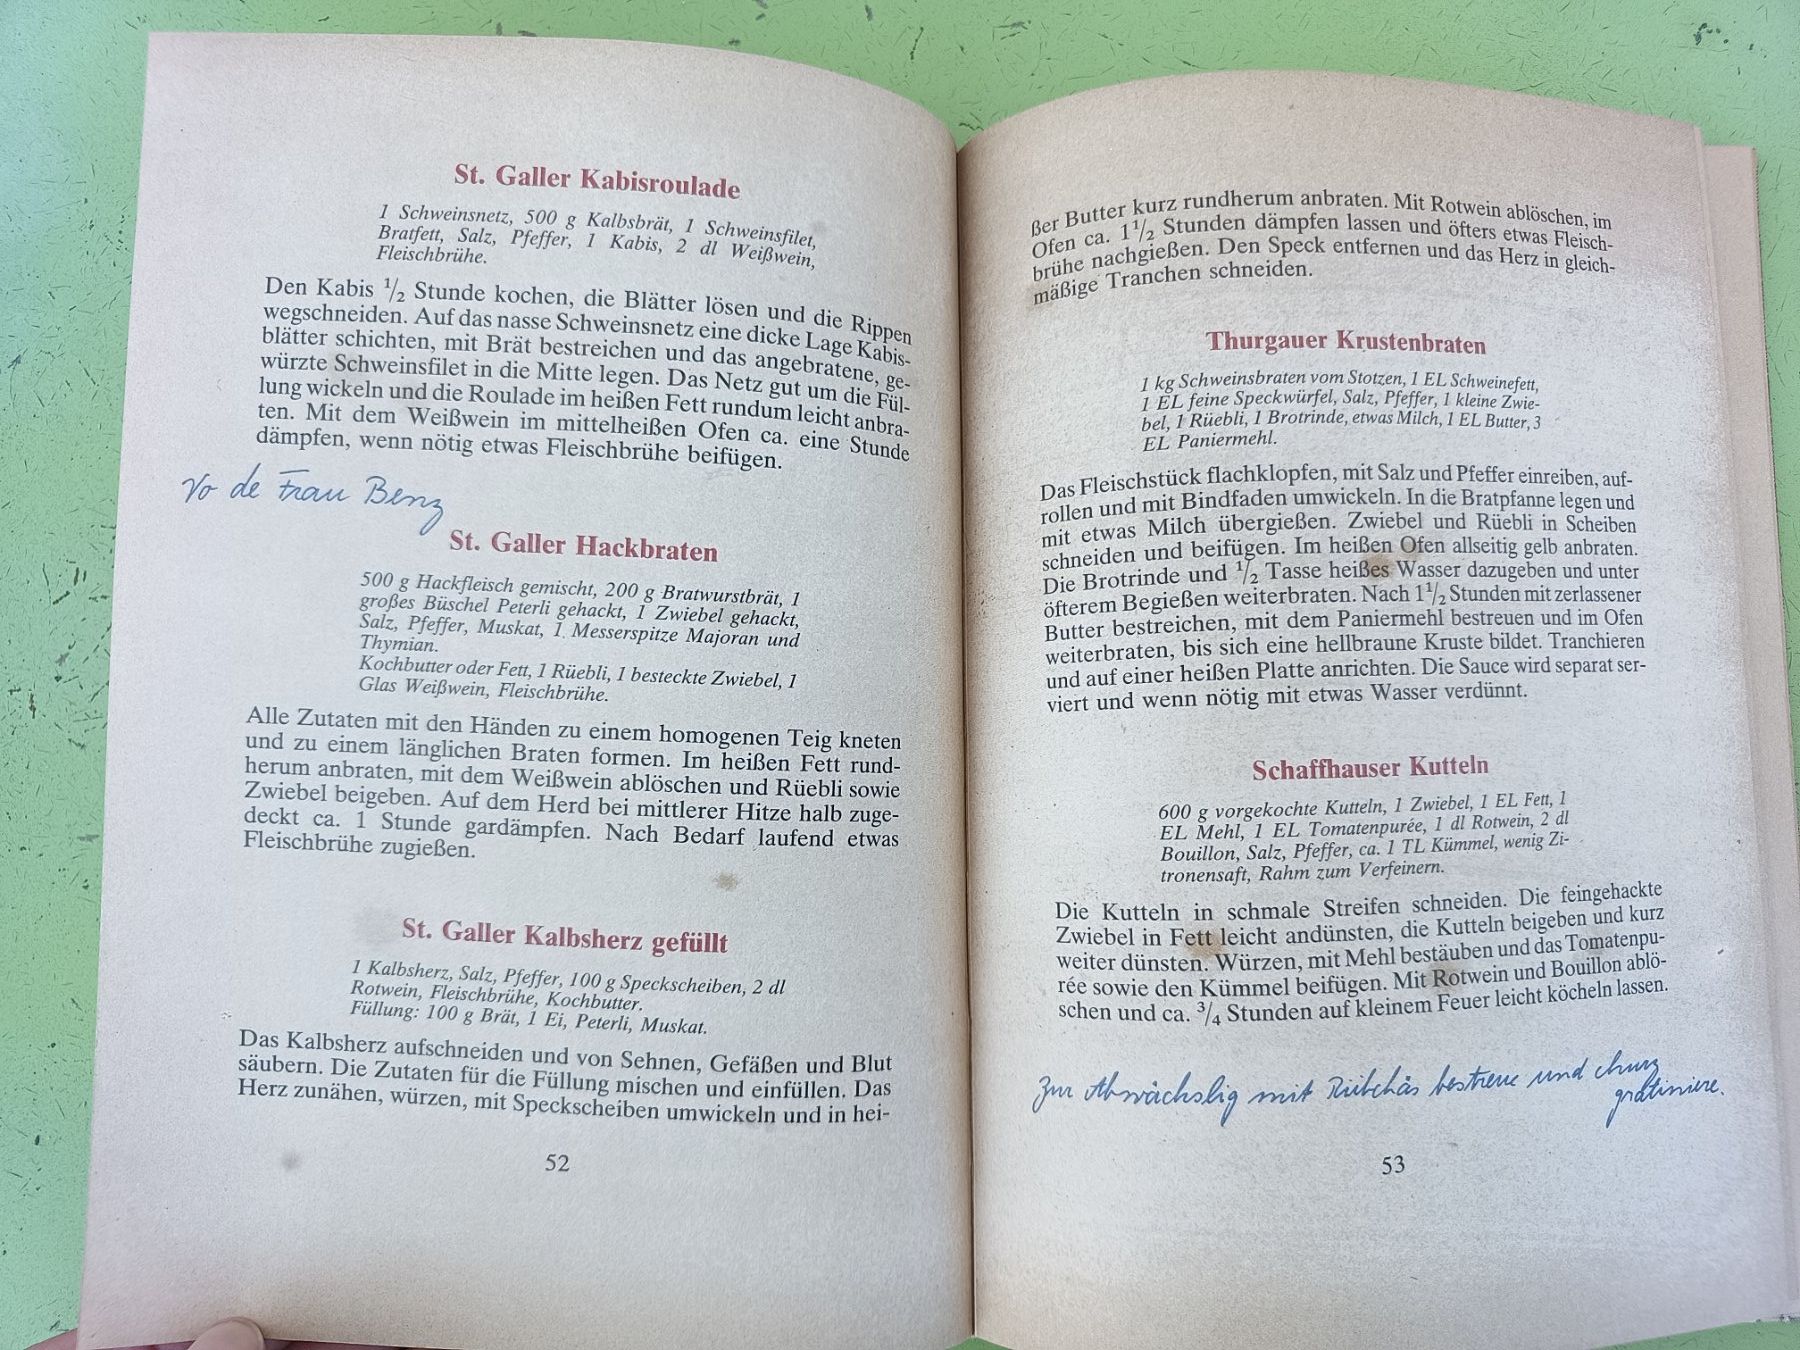 St. Galler Kabisroulade
1 Schweinsnetz, 500 g Kalbsbrät, 1 Schweinsfilet,
Bratfett, Salz, Pfeffer, 1 Kabis, 2 dl Weißwein,
Fleischbrühe.
Den Kabis 1/2 Stunde kochen, die Blätter lösen und die Rippen
wegschneiden. Auf das nasse Schweinsnetz eine dicke Lage Kabis-
blätter schichten, mit Brät bestreichen und das angebratene, ge-
würzte Schweinsfilet in die Mitte legen. Das Netz gut um die Fül-
lung wickeln und die Roulade im heißen Fett rundum leicht anbra-
ten. Mit dem Weißwein im mittelheißen Ofen ca. eine Stunde
dämpfen, wenn nötig etwas Fleischbrühe beifügen.
Vo de Frau Benz
St. Galler Hackbraten
500 g Hackfleisch gemischt, 200 g Bratwurstbrät, 1
großes Büschel Peterli gehackt, 1 Zwiebel gehackt,
Salz, Pfeffer, Muskat, 1 Messerspitze Majoran und
Thymian.
Kochbutter oder Fett, 1 Rüebli, 1 besteckte Zwiebel, 1
Glas Weißwein, Fleischbrühe.
Alle Zutaten mit den Händen zu einem homogenen Teig kneten
und zu einem länglichen Braten formen. Im heißen Fett rund-
herum anbraten, mit dem Weißwein ablöschen und Rüebli sowie
Zwiebel beigeben. Auf dem Herd bei mittlerer Hitze halb zuge-
deckt ca. 1 Stunde gardämpfen. Nach Bedarf laufend etwas
Fleischbrühe zugießen.
St. Galler Kalbsherz gefüllt
1 Kalbsherz, Salz, Pfeffer, 100 g Speckscheiben, 2 dl
Rotwein, Fleischbrühe, Kochbutter.
Füllung: 100 g Brät, 1 Ei, Peterli, Muskat.
Das Kalbsherz aufschneiden und von Sehnen, Gefäßen und Blut
säubern. Die Zutaten für die Füllung mischen und einfüllen. Das
Herz zunähen, würzen, mit Speckscheiben umwickeln und in hei-
52
ßer Butter kurz rundherum anbraten. Mit Rotwein ablöschen, im
Ofen ca. 1 1/2 Stunden dämpfen lassen und öfters etwas Fleisch-
brühe nachgießen. Den Speck entfernen und das Herz in gleich-
mäßige Tranchen schneiden.
Thurgauer Krustenbraten
1 kg Schweinsbraten vom Stotzen, 1 EL Schweinefett,
1 EL feine Speckwürfel, Salz, Pfeffer, 1 kleine Zwie-
bel, 1 Rüebli, 1 Brotrinde, etwas Milch, 1 EL Butter, 3
EL Paniermehl.
Das Fleischstück flachklopfen, mit Salz und Pfeffer einreiben, auf-
rollen und mit Bindfaden umwickeln. In die Bratpfanne legen und
mit etwas Milch übergießen. Zwiebel und Rüebli in Scheiben
schneiden und beifügen. Im heißen Ofen allseitig gelb anbraten.
Die Brotrinde und 1/2 Tasse heißes Wasser dazugeben und unter
öfterem Begießen weiterbraten. Nach 1 1/2 Stunden mit zerlassener
Butter bestreichen, mit dem Paniermehl bestreuen und im Ofen
weiterbraten, bis sich eine hellbraune Kruste bildet. Tranchieren
und auf einer heißen Platte anrichten. Die Sauce wird separat ser-
viert und wenn nötig mit etwas Wasser verdünnt.
Schaffhauser Kutteln
600 g vorgekochte Kutteln, 1 Zwiebel, 1 EL Fett, 1
EL Mehl, 1 EL Tomatenpurée, 1 dl Rotwein, 2 dl
Bouillon, Salz, Pfeffer, ca. 1 TL Kümmel, wenig Zi-
tronensaft, Rahm zum Verfeinern.
Die Kutteln in schmale Streifen schneiden. Die feingehackte
Zwiebel in Fett leicht andünsten, die Kutteln beigeben und kurz
weiter dünsten. Würzen, mit Mehl bestäuben und das Tomatenpu-
rée sowie den Kümmel beifügen. Mit Rotwein und Bouillon ablö-
schen und ca. 3/4 Stunden auf kleinem Feuer leicht köcheln lassen.
Zur Abwächslig mit Riibchäs bestreue und churz
gratiniere.
53